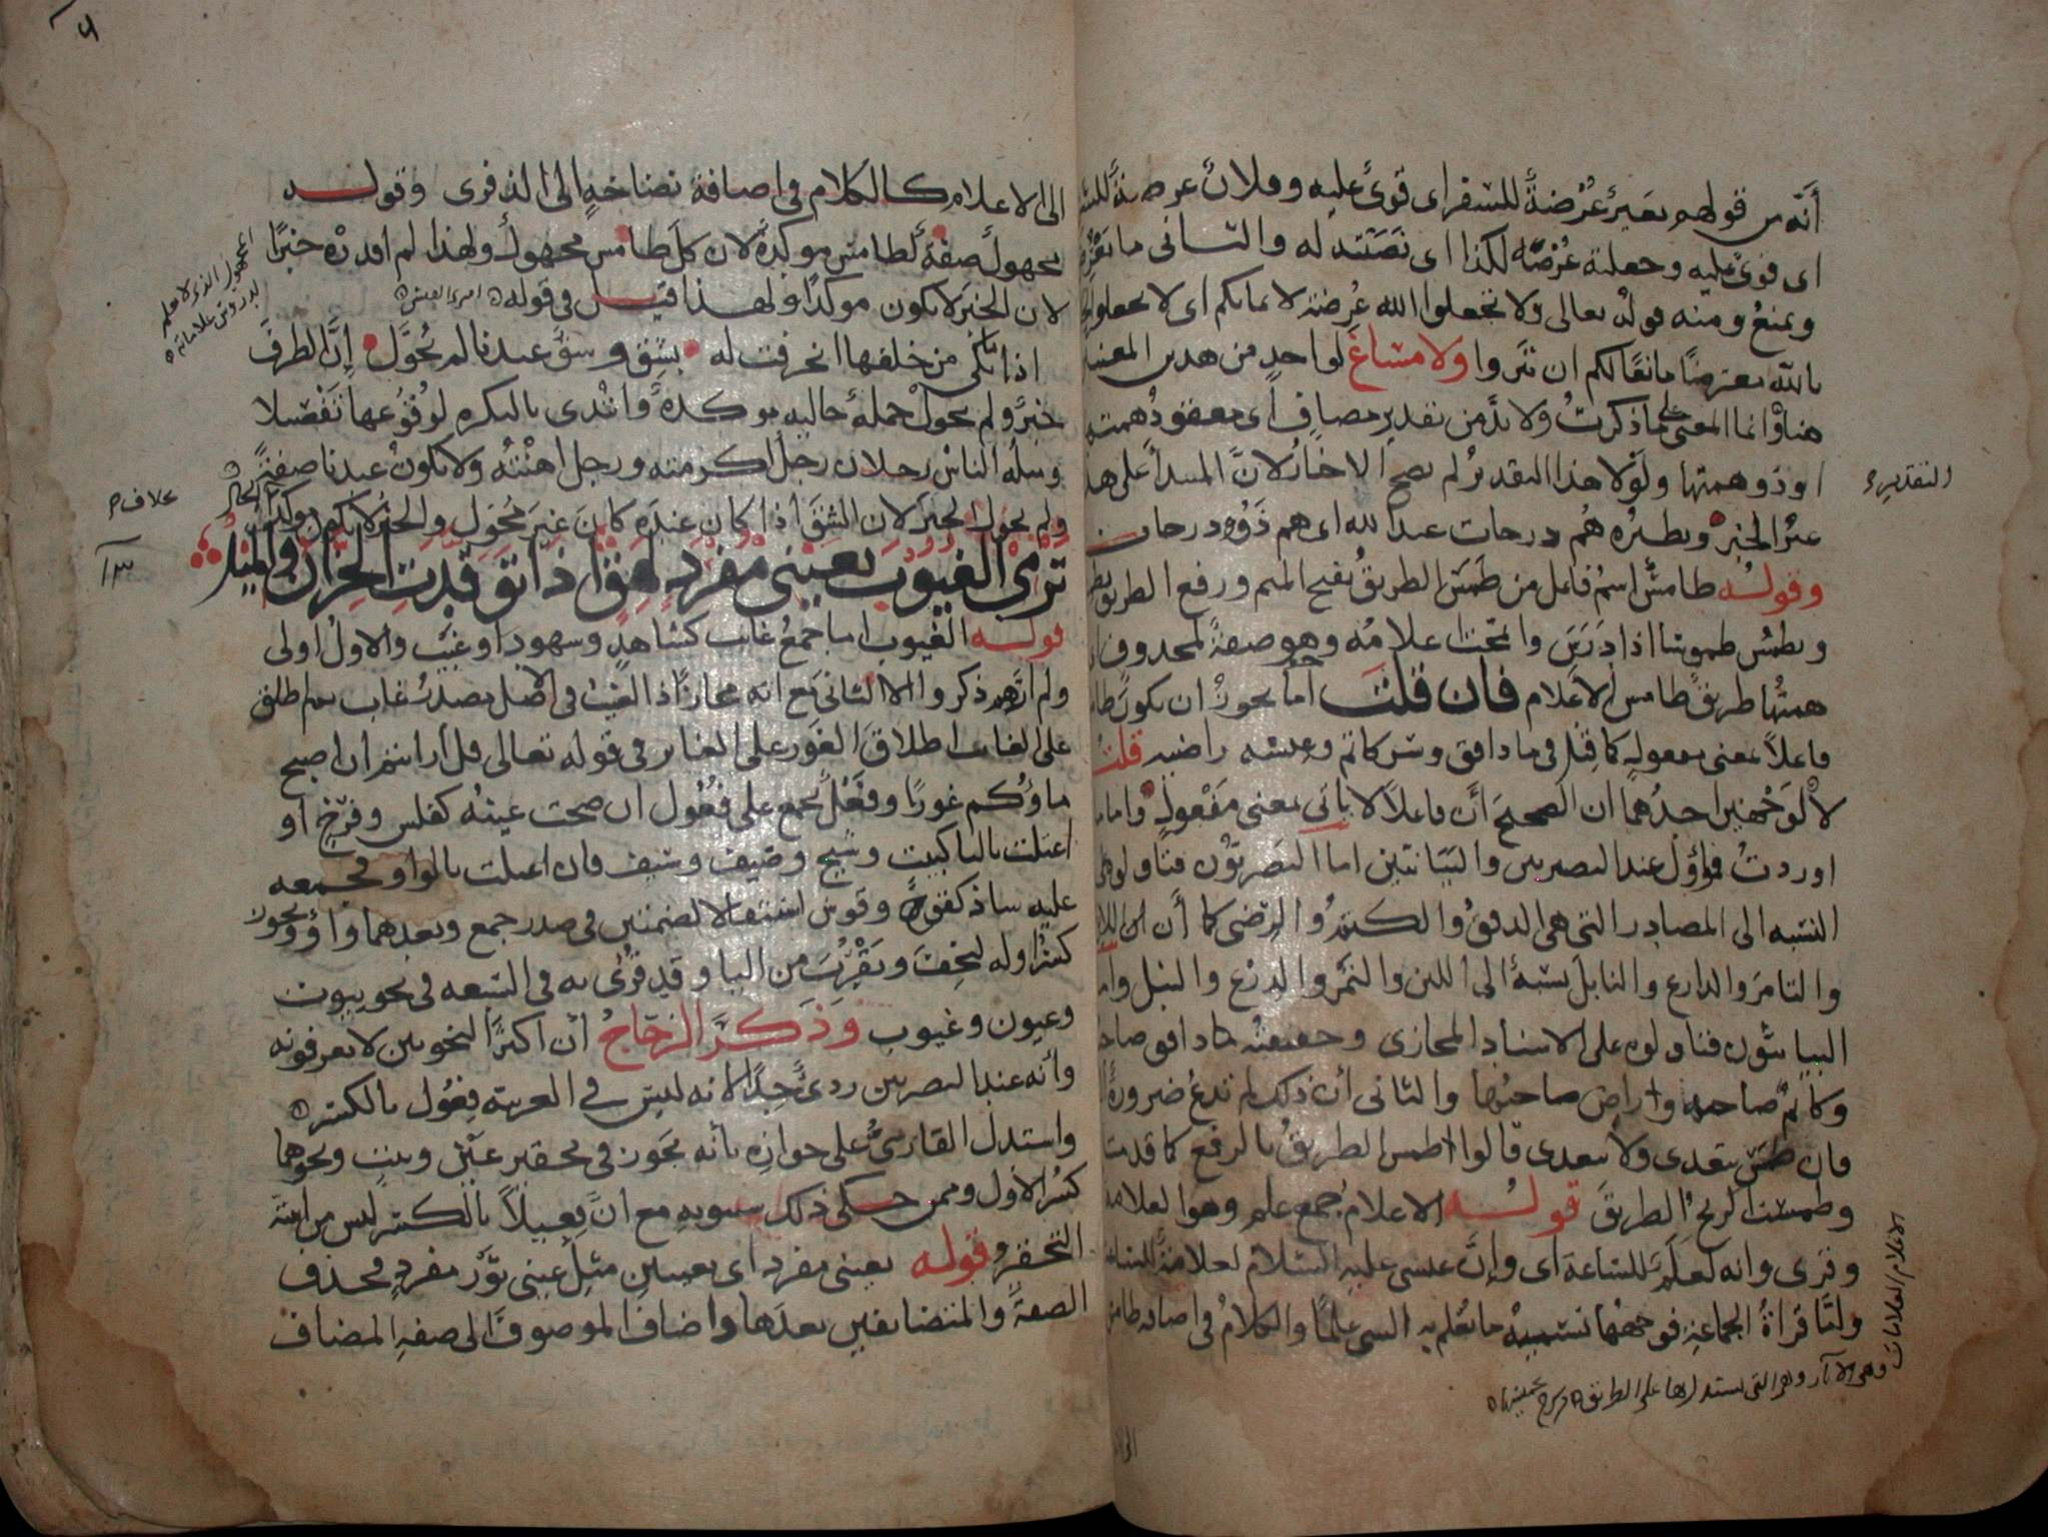 أنّه من قولهم بعيرٌ عُرْضةٌ للسفر اى قوىٌّ عليه وفلانٌ عرضةٌ للشر
اى قوىٌّ عليه وجعلته عُرْضةً لكذا اى نَصَبْته له والثانى ما
ويمنعُ ومنه قولُه تعالى ولا تجعلوا الله عُرضةً لايمانكم اى لا تجعلوا
بالله معترضًا مانعًا لكم ان تبروا ولا مساغ لواحدٍ من هذين المعنيين
هنا وانما المعنى على ما ذكرتُ ولا بدَّ من تقديرِ مضافٍ اى معقودُ همتها
او ذو همتها ولَوْلا هذا التقديرُ لم يصح الاخبارُ لانَّ المبتدأ على هذا
غيرُ الخبرِ ونظيرُه هُم درجات عند الله اى هم ذَوُو درجات
وقولُه طامسُ اسمُ فاعلٍ من طَمَسَ الطريقُ بفتح الميم ورفع الطريق
ويطمُس طموسًا اذا دَرَسَ وامَّحت اعلامُه وهو صفةٌ لمحذوف
همتُها طريقٌ طامس الاعلام فان قلتَ أما يجوزُ ان يكون
فاعلاً بمعنى مفعولٍ كما قيل فى ما دافق وسر كاتم وعيشه راضيه قلت
لا لوجهين احدُهما ان الصحيحَ أن فاعلاً لا يأتى بمعنى مَفْعولٍ واما ما
اوردتُ فمؤوَّل عند البصريين والبَيَانيّين اما البصريّون فتأولوه على
النسبه الى المصادر التى هى الدفقُ والكتمُ والرضى كما أن
والتامرَ والدارع والنابلَ نسبةٌ الى اللبن والتمر والدرْع والنبل وأما
البيانيّون فتاولوه على الاسناد المجازى وحقيقتُه دافق صاحبه
وكاتمٌ صاحبه وراضٍ صاحبُها والثانى أن ذلك لم تدعُ ضرورةٌ
فان طمَسَ يتعدى ولا يتعدى قالوا طمس الطريقُ بالرفع كما قدمت
وطمست الريحُ الطريقَ قولُه الاعلام جمع علم وهو العلامه
وقرى وانه لعلَمٌ للساعة اى وإنَّ عيسى عليه السلام لعلامةٌ للساعه
واما قراةُ الجماعةِ فوجهُها تسميةُ ما يُعلم به الشى علمًا والكلامُ فى اضافه طامس
التقدير
الاعلام العلامات
وهى الآثار التى يستدل بها على الطريق
الى الاعلام كالكلام فى اضافة نضّاخةٍ الى الذفرى وقوله
مجهولُ صفةٌ لطامس موكدةٌ لان كلَّ طامس مجهولٌ ولهذا لم اقدرْه خبرًا
لان الخبرَ لا يكون موكدًا ولهذا قيل فى قوله امرى القيس
اذا ما بكى من خلفها انحرفت له بشِقٍّ وشقٌّ عندنا لم يُحوَّل إنَّ الظرفَ
خبرٌ ولم يحولْ جملةٌ حاليه موكدةٌ وابتُدى بالنكره لوقُوعها تَفْصيلا
ومثلُه الناسُ رجلان رجلٌ اكرمته ورجلٌ اهنْتُه ولا يكونُ عندنا صفةً
ولم يحول الخبرَ لان الشِقَّ اذا كان عندَه كان غيرَ مُحَوَّلٍ والخبرُ لا يكون موكدًا بخلاف الحال
تَرْمِى الغُيُوبَ بِعَيْنَى مُفْرَدٍ لَهِقٍ اذا تَوَقَّدَتِ الحِزَّانُ والمِيلُ
قوله الغيوب اما جمعُ غائب كشاهدٍ وشهود او غيب والاول اولى
ولم ارهم ذكروا الا الثانى مع انه مجاز اذ الغيب فى الاصل مصدرُ غاب ثم اطلق
على الغائب اطلاقَ الغَوْر على الغائر فى قوله تعالى قل أرايتم ان اصبح
ماؤُكم غورًا وفَعْلٌ يجمع على فُعُول ان صحت عينُه كفلس وفَرْخ او
اعتلت باليا كبيت وشيخ وضيف وسيف فان اعتلت بالواو فجمعه
عليه شاذ كفوج وقوس استثقالا لضمتين فى صدر جمع وبعدهما واو ويجوز
كسر اوله ليخفَّ ويقرُبَ من اليا وقد قُرِئ به فى السبعه فى نحو بيوت
وعيون وغيوب وذكر الزجّاجُ أن اكثرَ النحويين لا يعرفونه
وأنه عند البصريين ردىٌّ جدًا لانه ليس فى العربية فِعُول بالكسر
واستدل الفارسىُّ على جوازه بأنه يجوز فى تحقير عَيْن وبيت ونحوهما
كسرُ الاول وممن حكى ذلك سيبويه مع انَّ فِعَيْلاً بالكسر ليس من ابنية
التحقير وقوله بعينى مفرد اى بعينين مثلِ عينى ثورٍ مفردٍ فحذف
الصفةَ والمتضايفين بعدَها واضافَ الموصوفَ الى صفهِ المضاف
المجهول الذى لا علم
خلاف
١٣